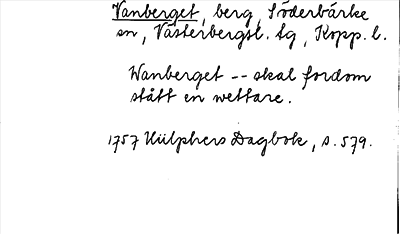 Vanberget, berg, Söderbärke
sn, Västerbergsl. tg, Kopp. l.
Wanberget -- skal fordom
stått en wettare.
1757 Hülphers Dagbok, s. 579.